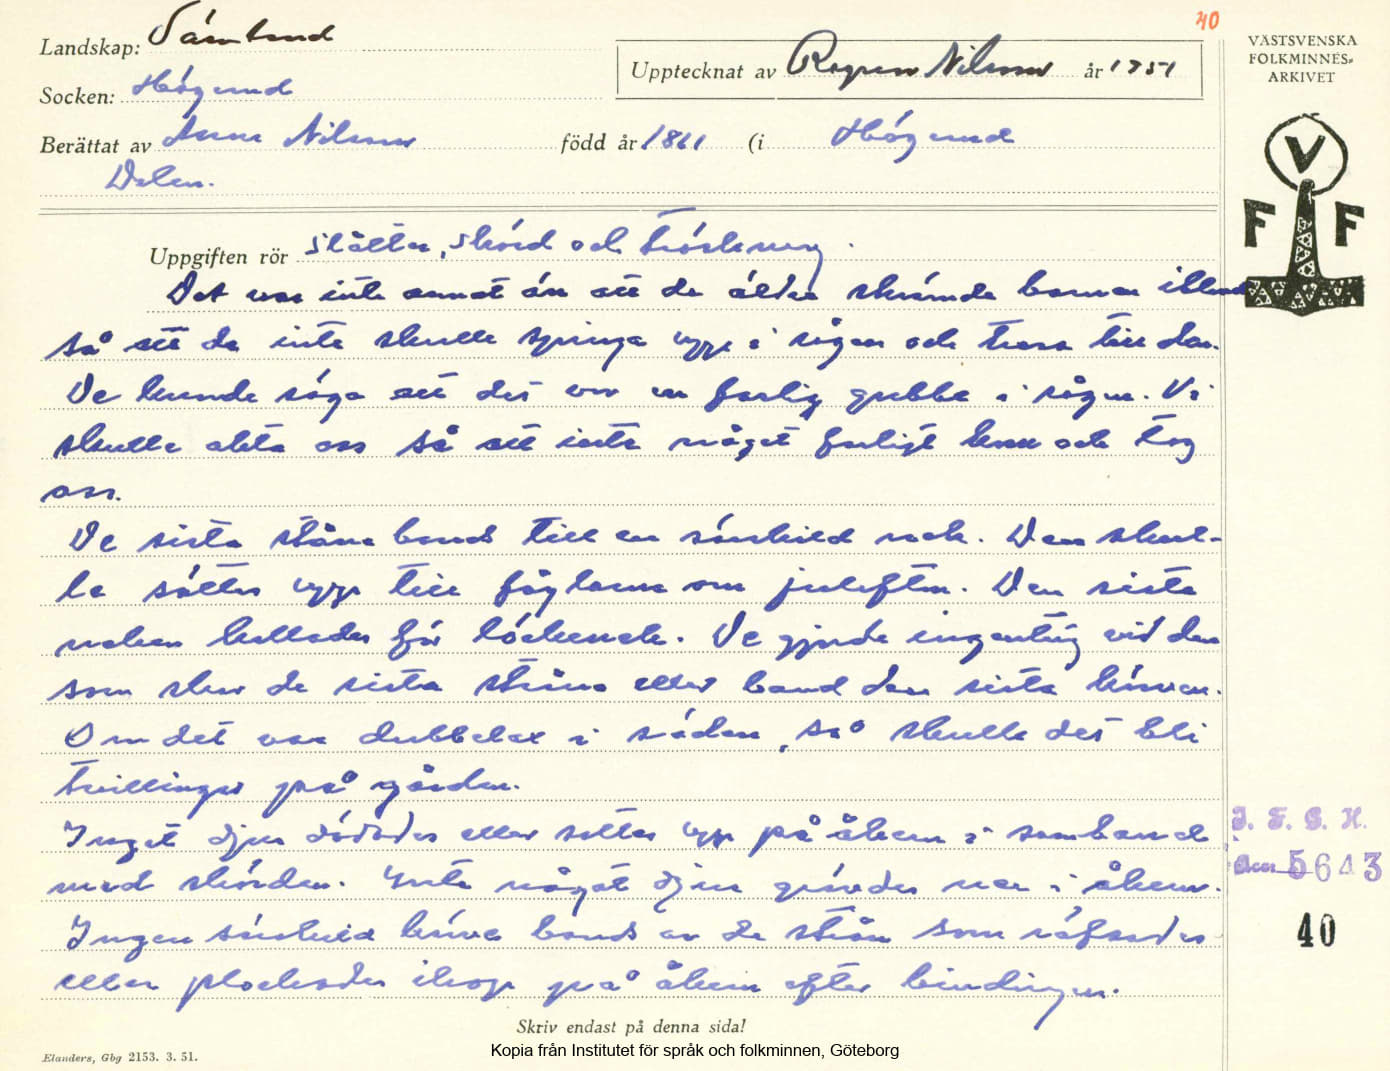 40
Landskap: Värmland
Upptecknat av Ragnar Nilsson år 1951
VÄSTSVENSKA
FOLKMINNES-
ARKIVET
Socken: Högerud
Berättat av Anna Nilsson född år 1861 (i Högerud
Dalen.
V
F F
Uppgiften rör Slåtter, skörd och tröskning.
Det var inte annat än att de äldre skrämde barnen ibland
så att de inte skulle springa upp i rågen och trassa till den.
De kunde säga att det var en farlig gubbe i rågen. Vi
skulle akta oss så att inte något farligt kom och tog
oss.
De sista stråna bands till en särskild nek. Den skul-
le sättas upp till fåglarna om julafton. Den sista
neken kallades för löckenek. De gjorde ingenting vid den
som skar de sista stråna eller band den sista kärven.
Om det var dubbelax i säden, så skulle det bli
tvillingar på gården.
Inget djur dödades eller sattes upp på åkern i samband
med skörden. Inte något djur grävdes ner i åkern.
Ingen särskild kärve bands av de strån som räfsades
eller plockades ihop på åkern efter bindningen.
I. F. G. H.
Acc 5643
40
Skriv endast på denna sida!
Elanders, Gbg 2153. 3. 51.
Kopia från Institutet för språk och folkminnen, Göteborg